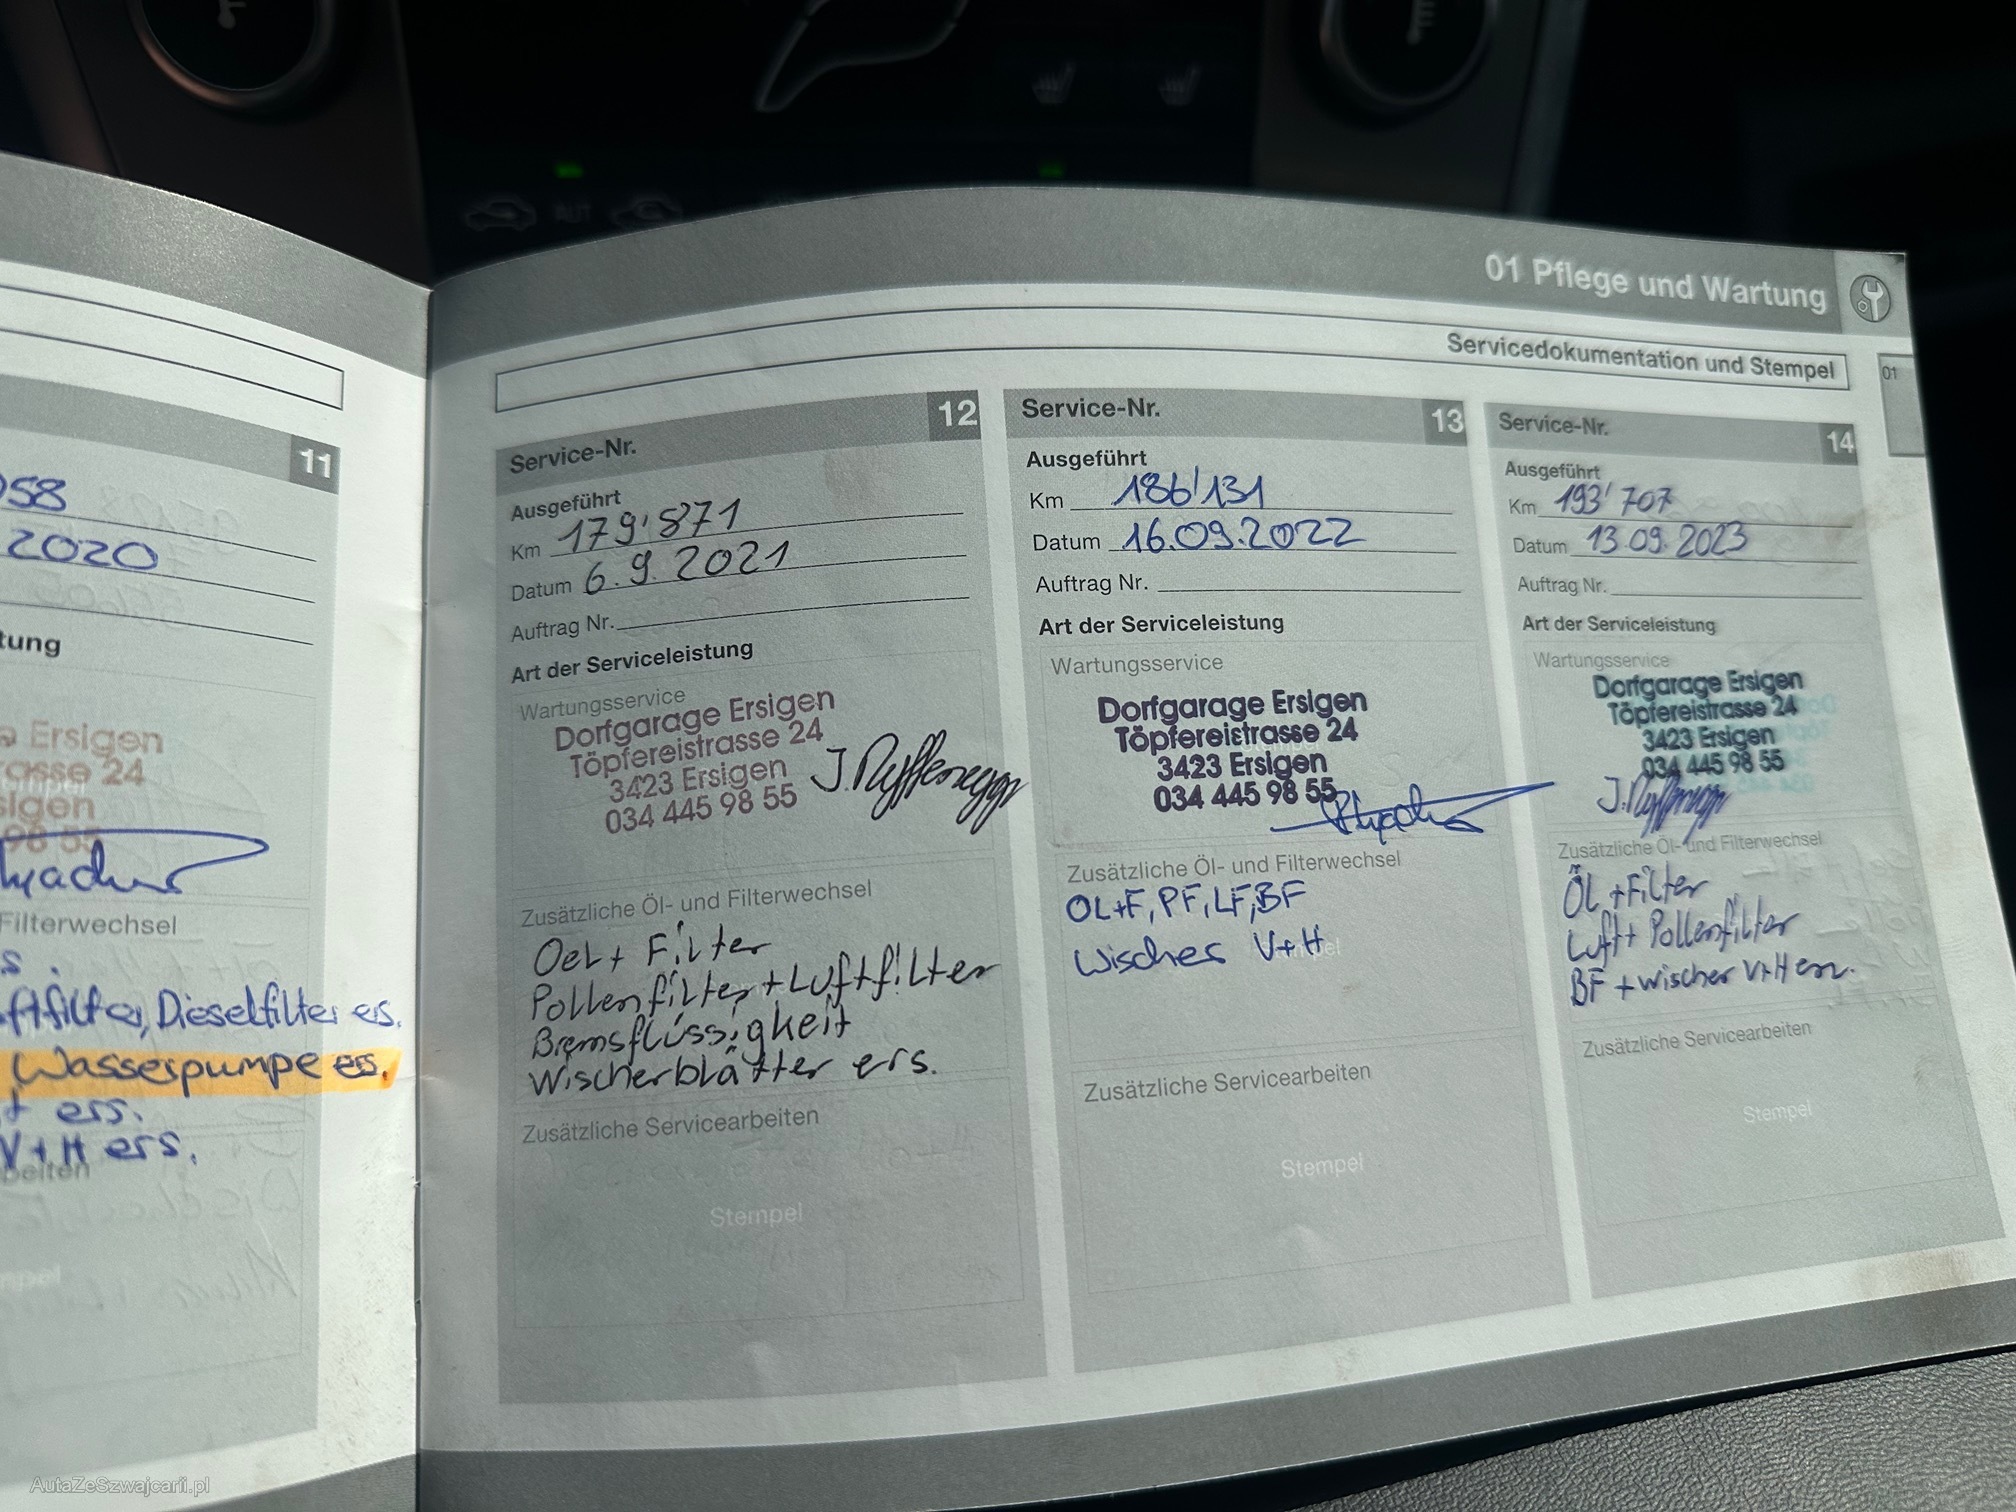 01 Pflege und Wartung
Servicedokumentation und Stempel
01
11
058
2020
tung
Ersigen
asse 24
sigen
98 55
Filterwechsel
s.
ftfilter, Dieselfilter ers.
Wasserpumpe ers.
t ers.
V+H ers.
beiten
mpel
Service-Nr. 12
Ausgeführt
Km 179'871
Datum 6.9.2021
Auftrag Nr.
Art der Serviceleistung
Wartungsservice
Dorfgarage Ersigen
Töpfereistrasse 24
3423 Ersigen
034 445 98 55
Zusätzliche Öl- und Filterwechsel
Oel + Filter
Pollenfilter + Luftfilter
Bremsflüssigkeit
Wischerblätter ers.
Zusätzliche Servicearbeiten
Stempel
Service-Nr. 13
Ausgeführt
Km 186'131
Datum 16.09.2022
Auftrag Nr.
Art der Serviceleistung
Wartungsservice
Dorfgarage Ersigen
Töpfereistrasse 24
3423 Ersigen
034 445 98 55
Zusätzliche Öl- und Filterwechsel
OL+F, PF, LF, BF
Wischer V+H
Zusätzliche Servicearbeiten
Stempel
Service-Nr. 14
Ausgeführt
Km 193'707
Datum 13.09.2023
Auftrag Nr.
Art der Serviceleistung
Wartungsservice
Dorfgarage Ersigen
Töpfereistrasse 24
3423 Ersigen
034 445 98 55
Zusätzliche Öl- und Filterwechsel
Öl + Filter
Luft + Pollenfilter
BF + Wischer V+H ern.
Zusätzliche Servicearbeiten
Stempel
AutaZeSzwajcarii.pl